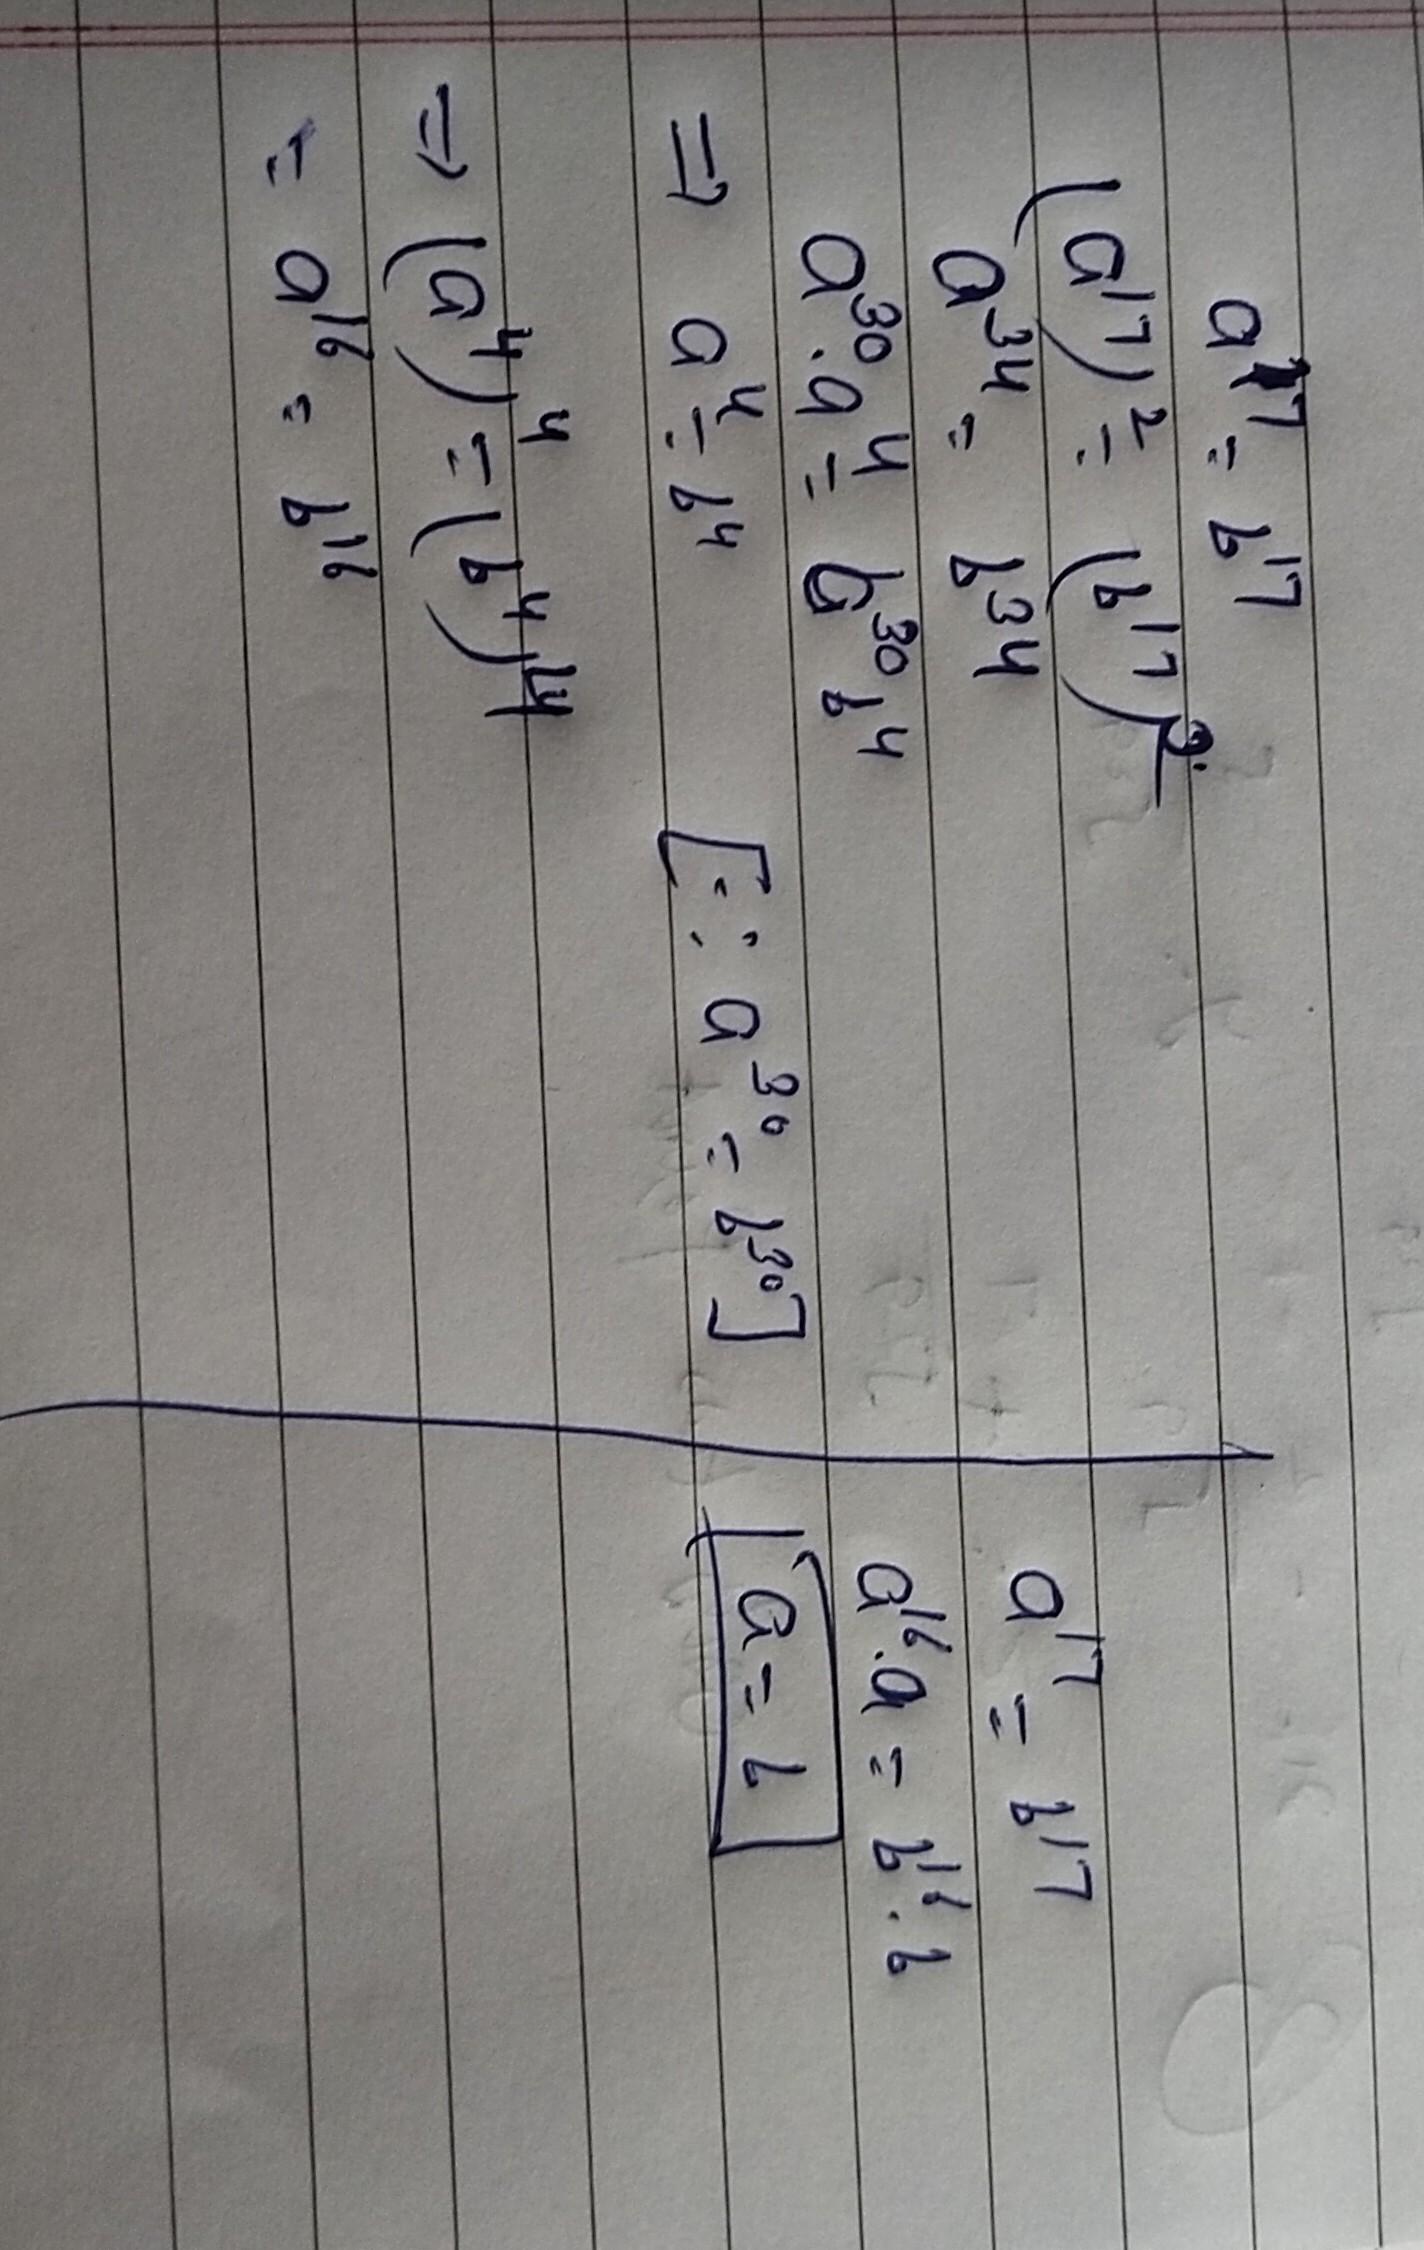 a¹⁷ = b¹⁷
(a¹⁷)² = (b¹⁷)²
a³⁴ = b³⁴
a³⁰.a⁴ = b³⁰b⁴
⇒ a⁴ = b⁴ [∵ a³⁰ = b³⁰]
⇒ (a⁴)⁴ = (b⁴)⁴
= a¹⁶ = b¹⁶
a¹⁷ = b¹⁷
a¹⁶.a = b¹⁶.b
a = b